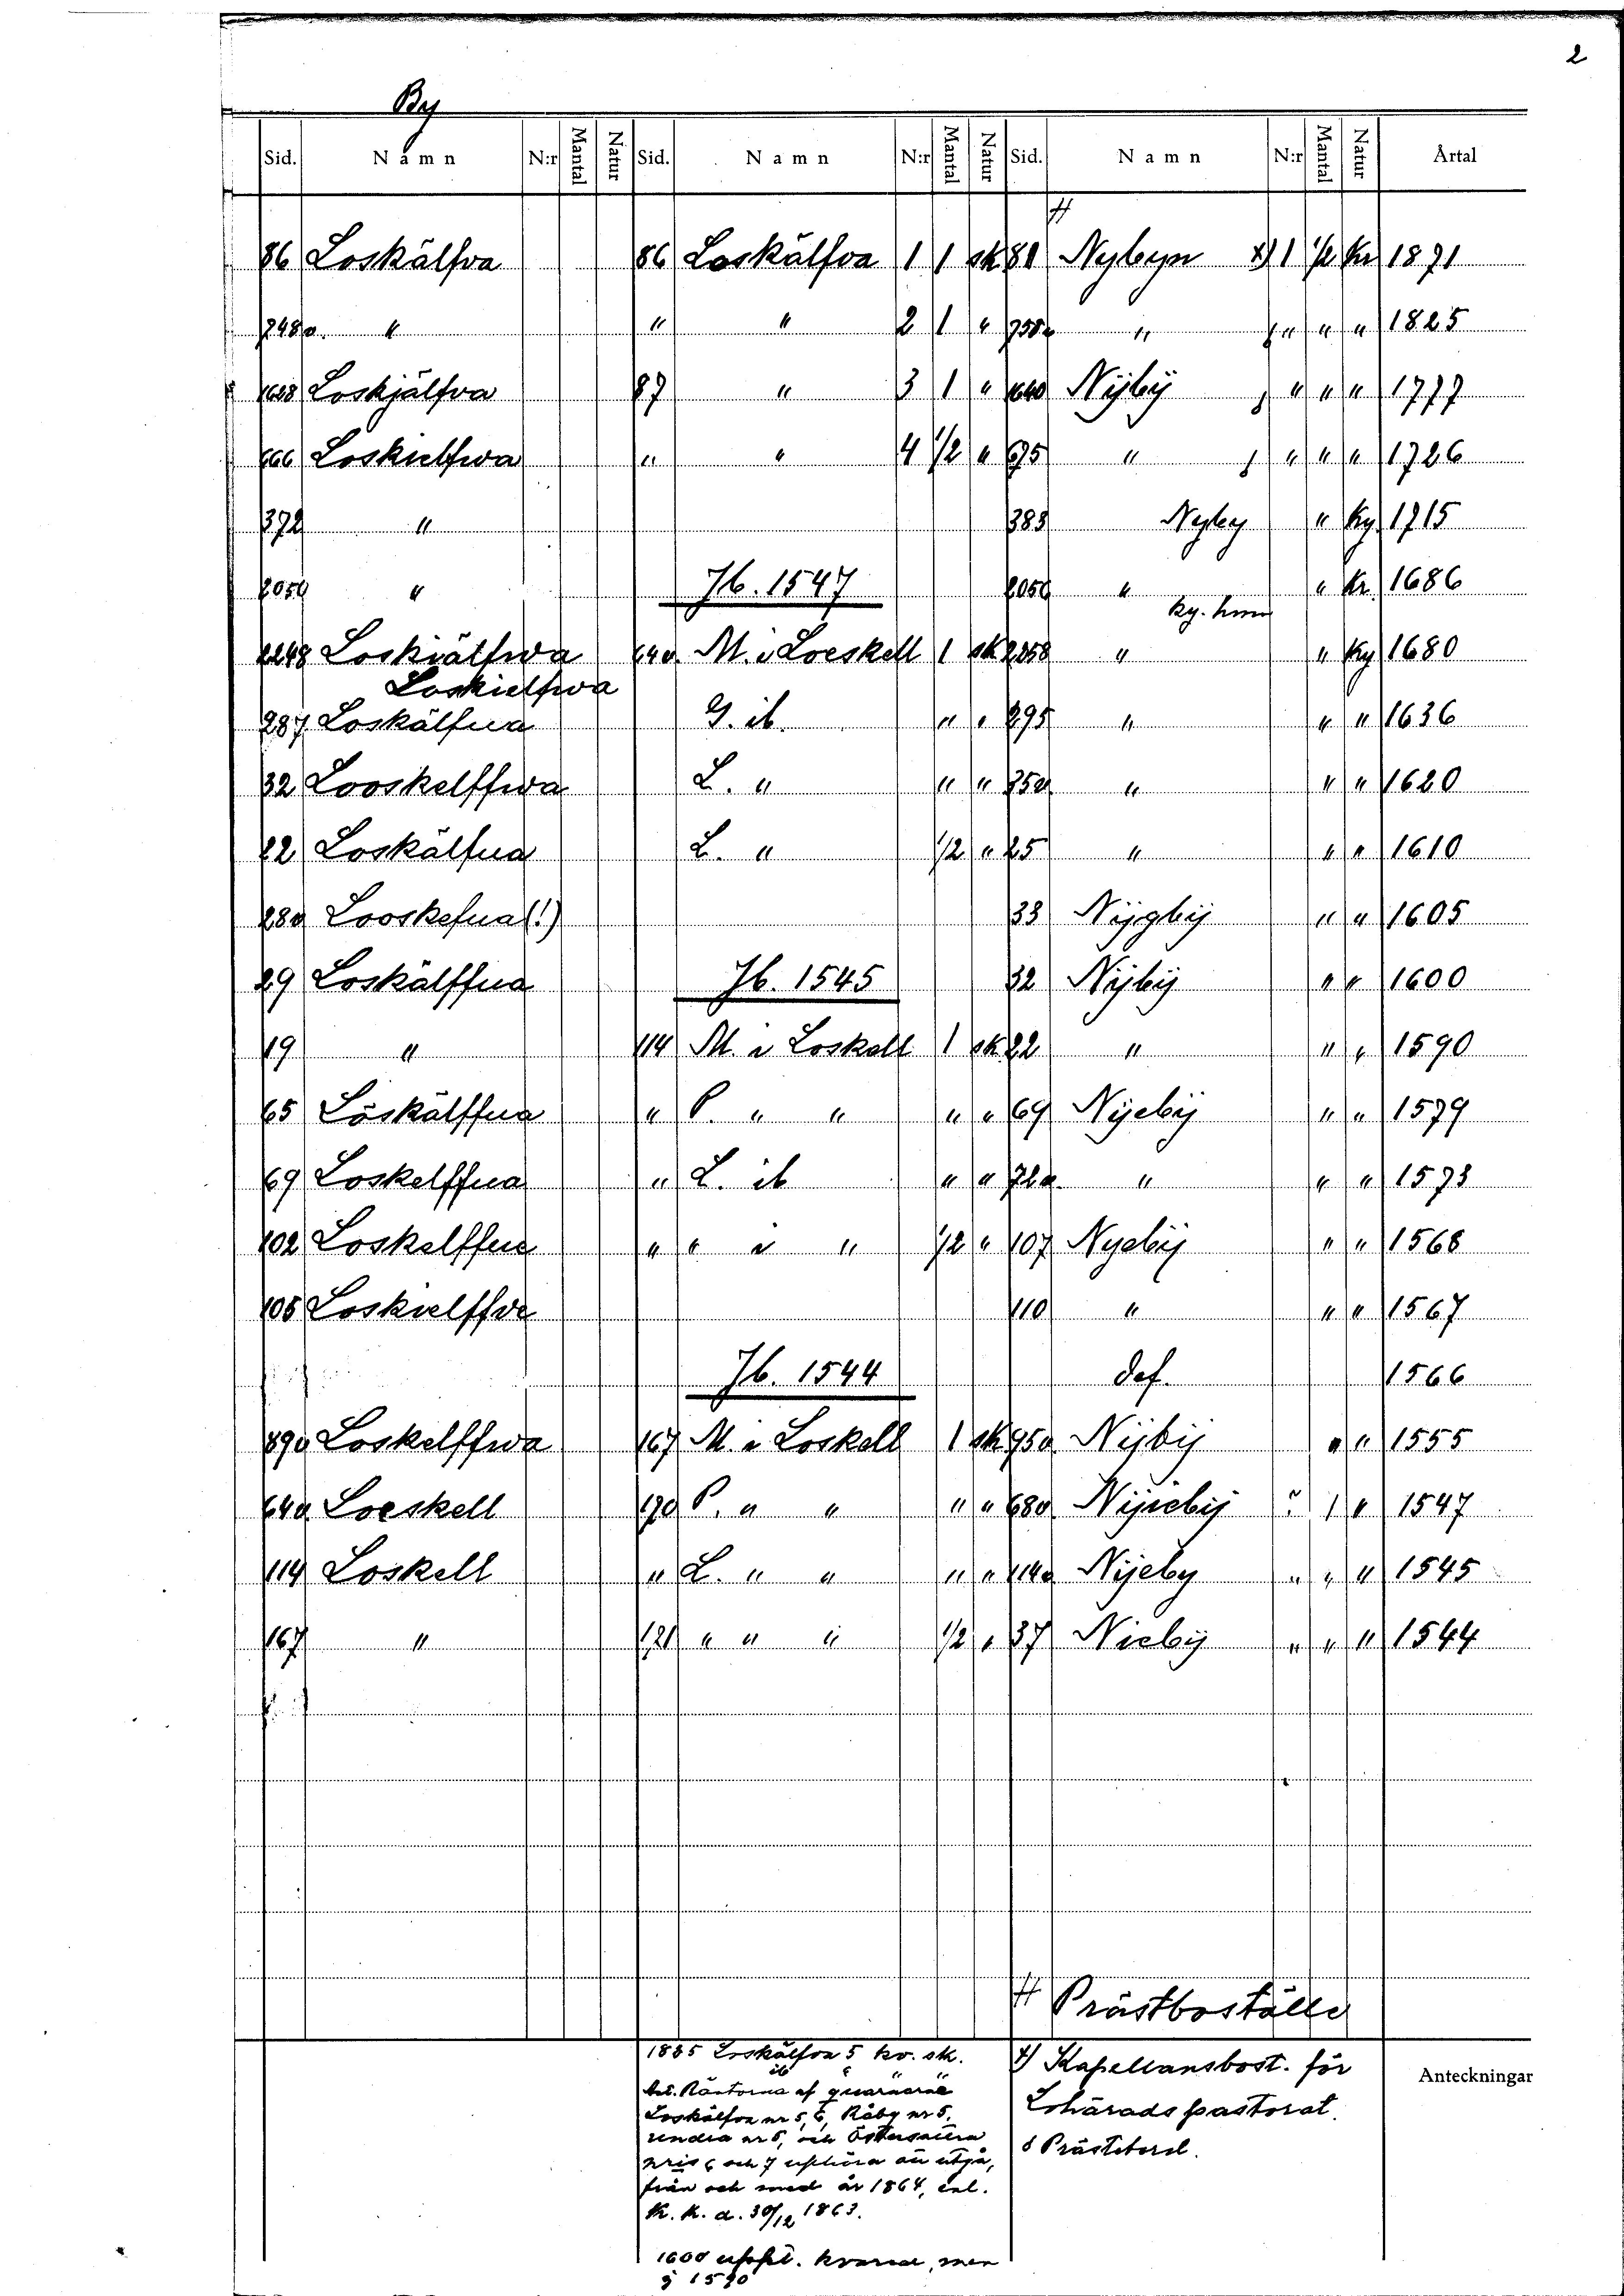 2
By
Sid. Namn N:r Mantal Natur Sid. Namn N:r Mantal Natur Sid. Namn N:r Mantal Natur Årtal
#
86 Loskälfva 86 Loskälfva 1 1 sk 81 Nybyn x) 1 1/2 kr 1871
748v. " " " 2 1 " 755v " § " " " 1825
1628 Loskjälfva 87 " 3 1 " 1640 Nÿbÿ § " " " 1777
666 Loskielfwa " " 4 1/2 " 675 " § " " " 1726
372 " 383 Nyby " ky. 1715
2054 " Jb. 1547 2056 " " kr. 1686
ky. hmn
2248 Loskiälfwa 64v. M. i Loeskell 1 sk 2258 " " ky 1680
Loskielfwa
287 Loskälfua G. ib. " " 295 " " " 1636
32 Looskelffwa L. " " " 35v. " " " 1620
22 Loskälfua L. " 1/2 " 25 " " " 1610
28v Looskefua (!) 33 Nÿgbÿ " " 1605
29 Loskälffua Jb. 1545 32 Nÿbÿ " " 1600
19 " 114 M. i Loskell 1 sk 22 " " " 1590
65 Löskälffua " P. " " " " 69 Nÿebÿ " " 1579
69 Loskelffua " L. ib " " 72v. " " " 1573
102 Loskelffue " " i " 1/2 " 107 Nyebÿ " " 1568
105 Loskielffve 110 " " " 1567
Jb. 1544 def. 1566
89v Loskelffwa 167 M. i Loskell 1 sk 95v Nÿbÿ " " 1555
64v Loeskell 170 P. " " " " 68v Nÿiebÿ 1 " 1547
114 Loskell " L. " " " " 114v Nÿeby " " " 1545
167 " 121 " " " 1/2 " 37 Niebÿ " " " 1544
# Prästboställe
1885 Loskälfva 5 kv. sk.
ib 6 " "
Ant. Räntorna af quarnarne
Loskälfva nr 5, 6, Råby nr 5,
nr 5, och
n:ris 6 och 7 upphöra att utgå,
från och med år 1864, enl.
K. K. d. 30/12 1863.
1600 uppt. kvarnar, men
ej 1590
x) Kapellansbost. för
Lohärads pastorat.
§ Prästebord.
Anteckningar